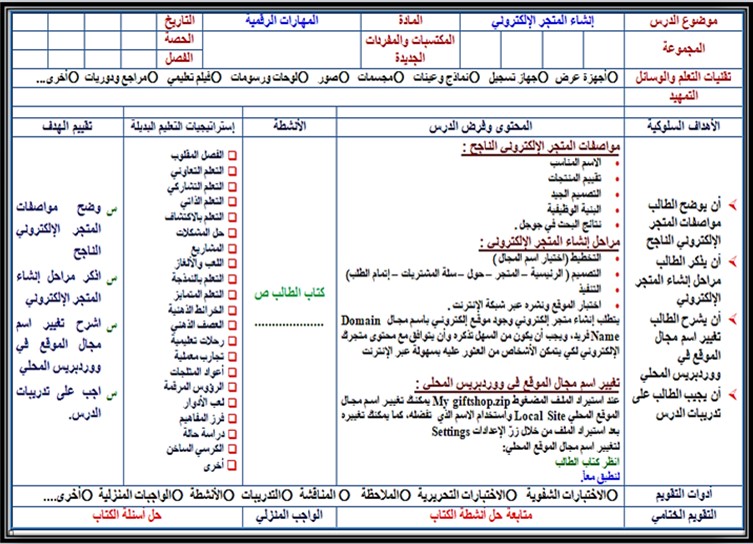 موضوع الدرس إنشاء المتجر الإلكتروني المادة المهارات الرقمية التاريخ
المجموعة المكتسبات والمفردات الجديدة الحصة
الفصل
تقنيات التعلم والوسائل أجهزة عرض جهاز تسجيل نماذج وعينات مجسمات صور لوحات ورسومات فيلم تعليمي مراجع ودوريات أخرى...
التمهيد
الأهداف السلوكية المحتوى وفرض الدرس الأنشطة إستراتيجيات التعليم البديلة تقييم الهدف
أن يوضح الطالب
مواصفات المتجر
الإلكتروني الناجح
أن يذكر الطالب
مراحل إنشاء المتجر
الإلكتروني
أن يشرح الطالب
تغيير اسم مجال
الموقع في
ووردبريس المحلي
أن يجيب الطالب على
تدريبات الدرس
مواصفات المتجر الإلكتروني الناجح :
الاسم المناسب
تقييم المنتجات
التصميم الجيد
البنية الوظيفية
نتائج البحث في جوجل .
مراحل إنشاء المتجر الإلكتروني :
التخطيط (اختيار اسم المجال )
التصميم ( الرئيسية – المتجر – حول – سلة المشتريات – إتمام الطلب)
التنفيذ
اختبار الموقع ونشره عبر شبكة الإنترنت .
يتطلب إنشاء متجر إلكتروني وجود موقع إلكتروني باسم مجال Domain
Name فريد، ويجب أن يكون من السهل تذكره وأن يتوافق مع محتوى متجرك
الإلكتروني لكي يتمكن الأشخاص من العثور عليه بسهولة عبر الإنترنت
تغيير اسم مجال الموقع في ووردبريس المحلي :
عند استيراد الملف المضغوط My giftshop.zip يمكنك تغيير اسم مجال
الموقع المحلي Local Site واستخدام الاسم الذي تفضله، كما يمكنك تغييره
بعد استيراد الملف من خلال زرّ الإعدادات Settings
لتغيير اسم مجال الموقع المحلي:
انظر كتاب الطالب
لنطبق معاً.
كتاب الطالب ص
....................
الفصل المقلوب
التعلم التعاوني
التعلم التشاركي
التعلم الذاتي
التعلم بالاكتشاف
حل المشكلات
المشاريع
اللعب والألغاز
التعلم بالنمذجة
التعلم المتمايز
الخرائط الذهنية
العصف الذهني
رحلات تعليمية
تجارب معملية
أعواد المثلجات
الرؤوس المرقمة
لعب الأدوار
فرز المفاهيم
دراسة حالة
الكرسي الساخن
أخرى
س وضح مواصفات
المتجر الإلكتروني
الناجح
س اذكر مراحل إنشاء
المتجر الإلكتروني
س اشرح تغيير اسم
مجال الموقع في
ووردبريس المحلي
س اجب على تدريبات
الدرس.
أدوات التقويم الاختبارات الشفوية الاختبارات التحريرية الملاحظة المناقشة التدريبات الأنشطة الواجبات المنزلية أخرى....
التقويم الختامي متابعة حل أنشطة الكتاب الواجب المنزلي حل أسئلة الكتاب